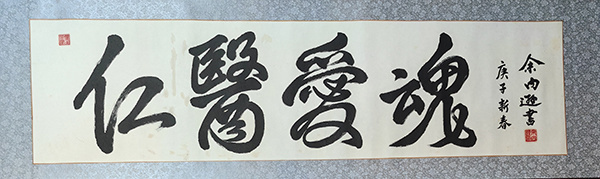 仁醫愛魂
庚子新春
余書